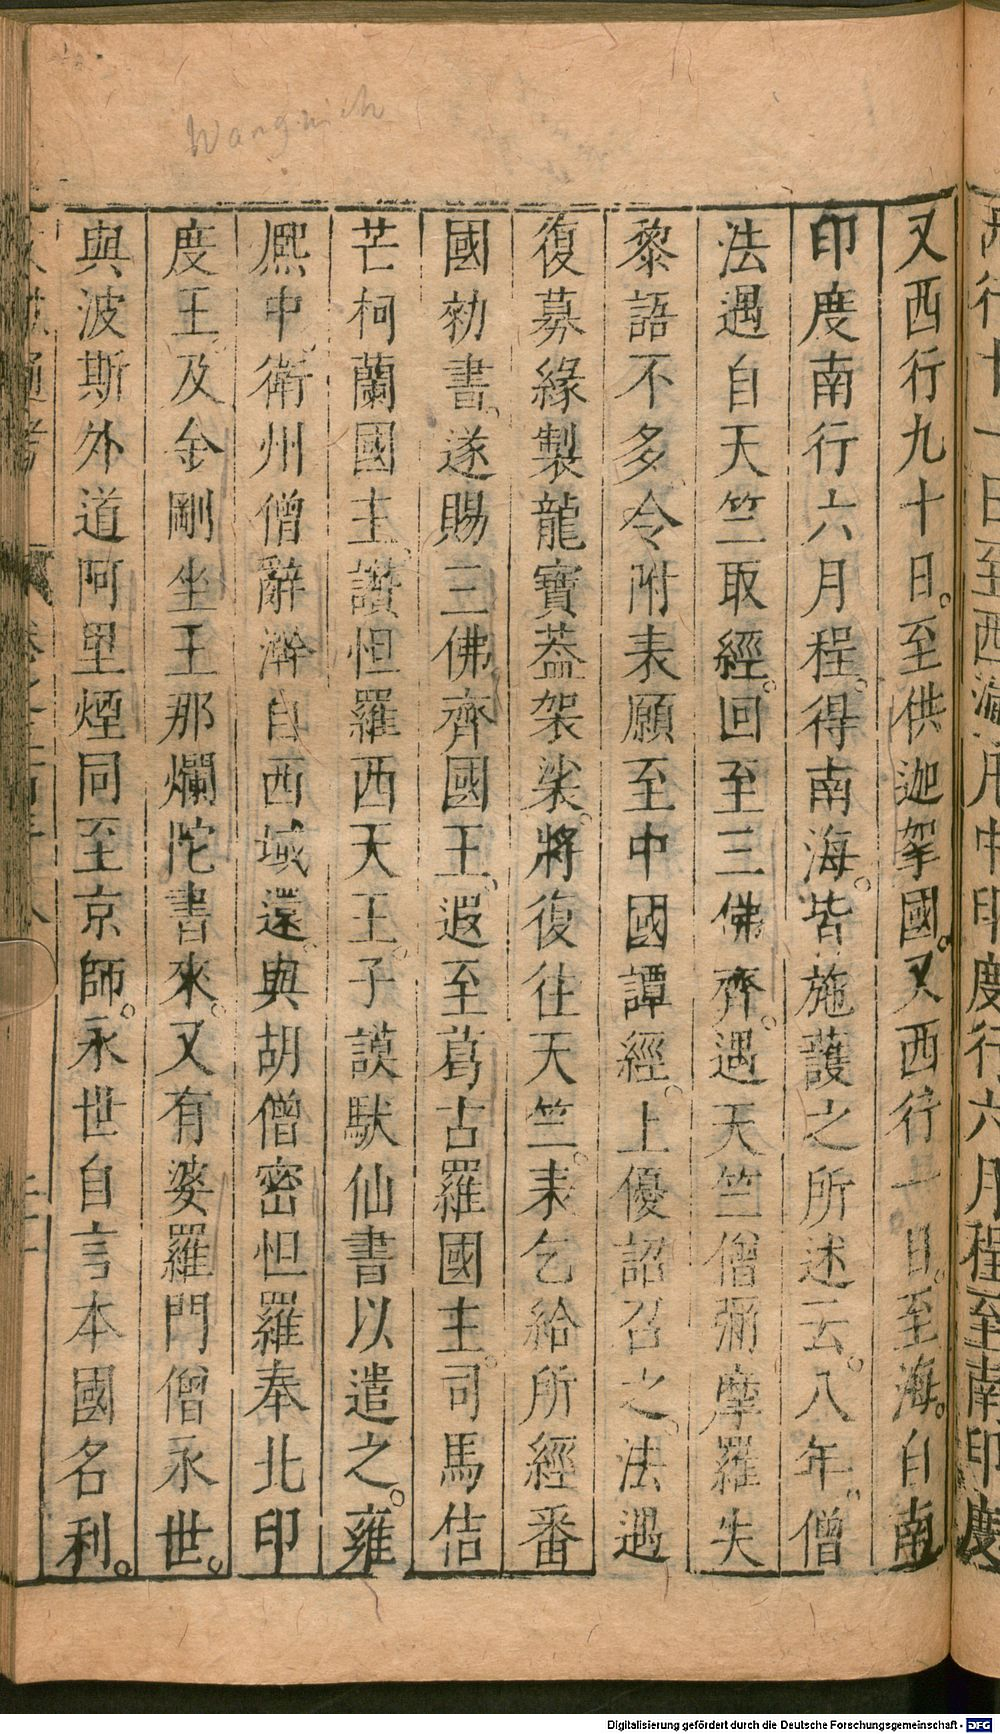 Wangnich
又西行九十日。至供迦拏國。又西行一日。至海。自南
印度南行六月程。得南海。皆施護之所述云。八年。僧
法遇自天竺取經。回至三佛齊。遇天竺僧彌摩羅失
黎語不多令附表願至中國譚經。上優詔召之。法遇
復募緣製龍寶蓋袈裟。將復往天竺。表乞給所經番
國勑書。遂賜三佛齊國王。遐至葛古羅國主。司馬佶
芒柯蘭國主。讃怛羅西天王。子謨馱仙書以遣之。雍
熈中。衛州僧辭澣自西域還。與胡僧密怛羅奉北印
度王。及金剛坐王那爛陀書來。又有婆羅門僧永世。
與波斯外道阿里煙同至京師。永世自言本國名利。
通考
Digitalisierung gefördert durch die Deutsche Forschungsgemeinschaft - DFG